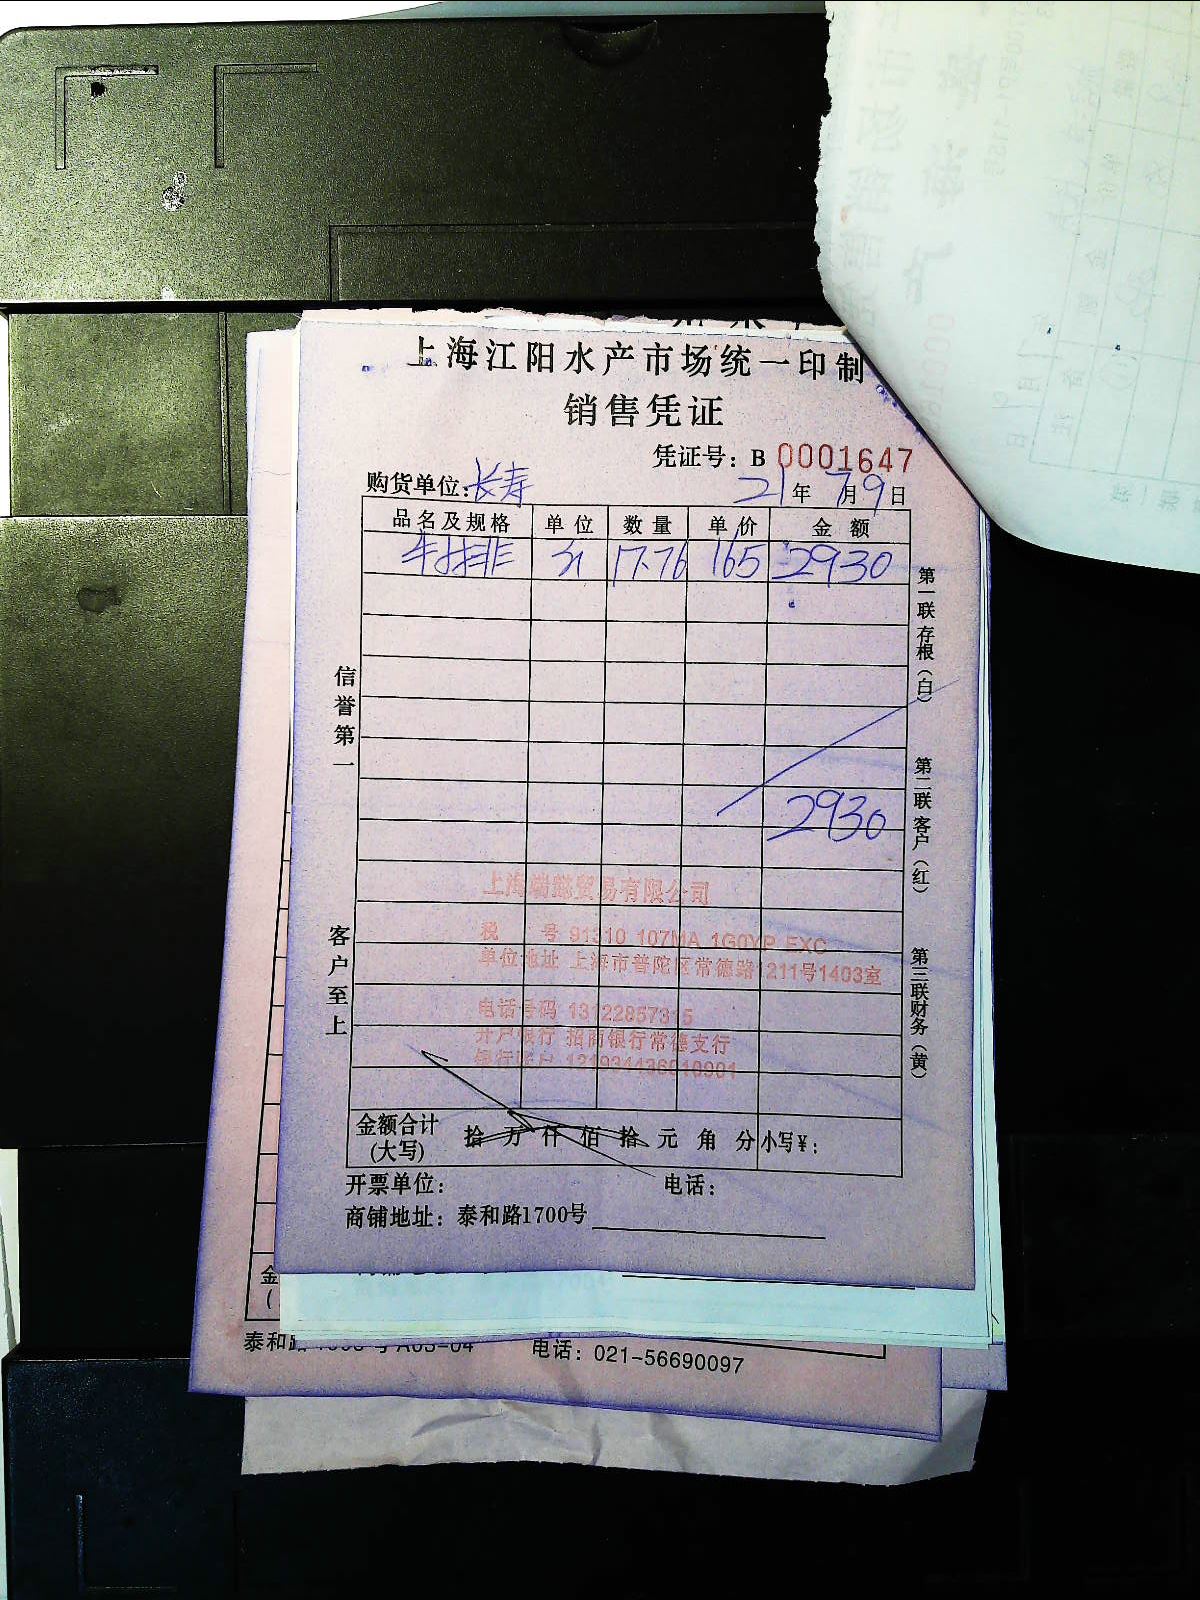 上海江阳水产市场统一印制
销售凭证
凭证号：B 0001647
购货单位：长寿 21年 7月9日
品名及规格 单位 数量 单价 金额
牛排 17.76 165 2930
2930
信誉第一
客户至上
第一联存根（白）
第二联客户（红）
第三联财务（黄）
上海 贸易有限公司
税 号 91310 107MA 1G0YP EXC
单位地址 上海市普陀区常德路1211号1403室
电话号码 13122857315
开户银行 招商银行常德支行
银行账户
金额合计 拾 万 仟 佰 拾 元 角 分 小写¥：
(大写)
开票单位： 电话：
商铺地址：泰和路1700号
金
(
泰和路 号A03-04 电话：021-56690097